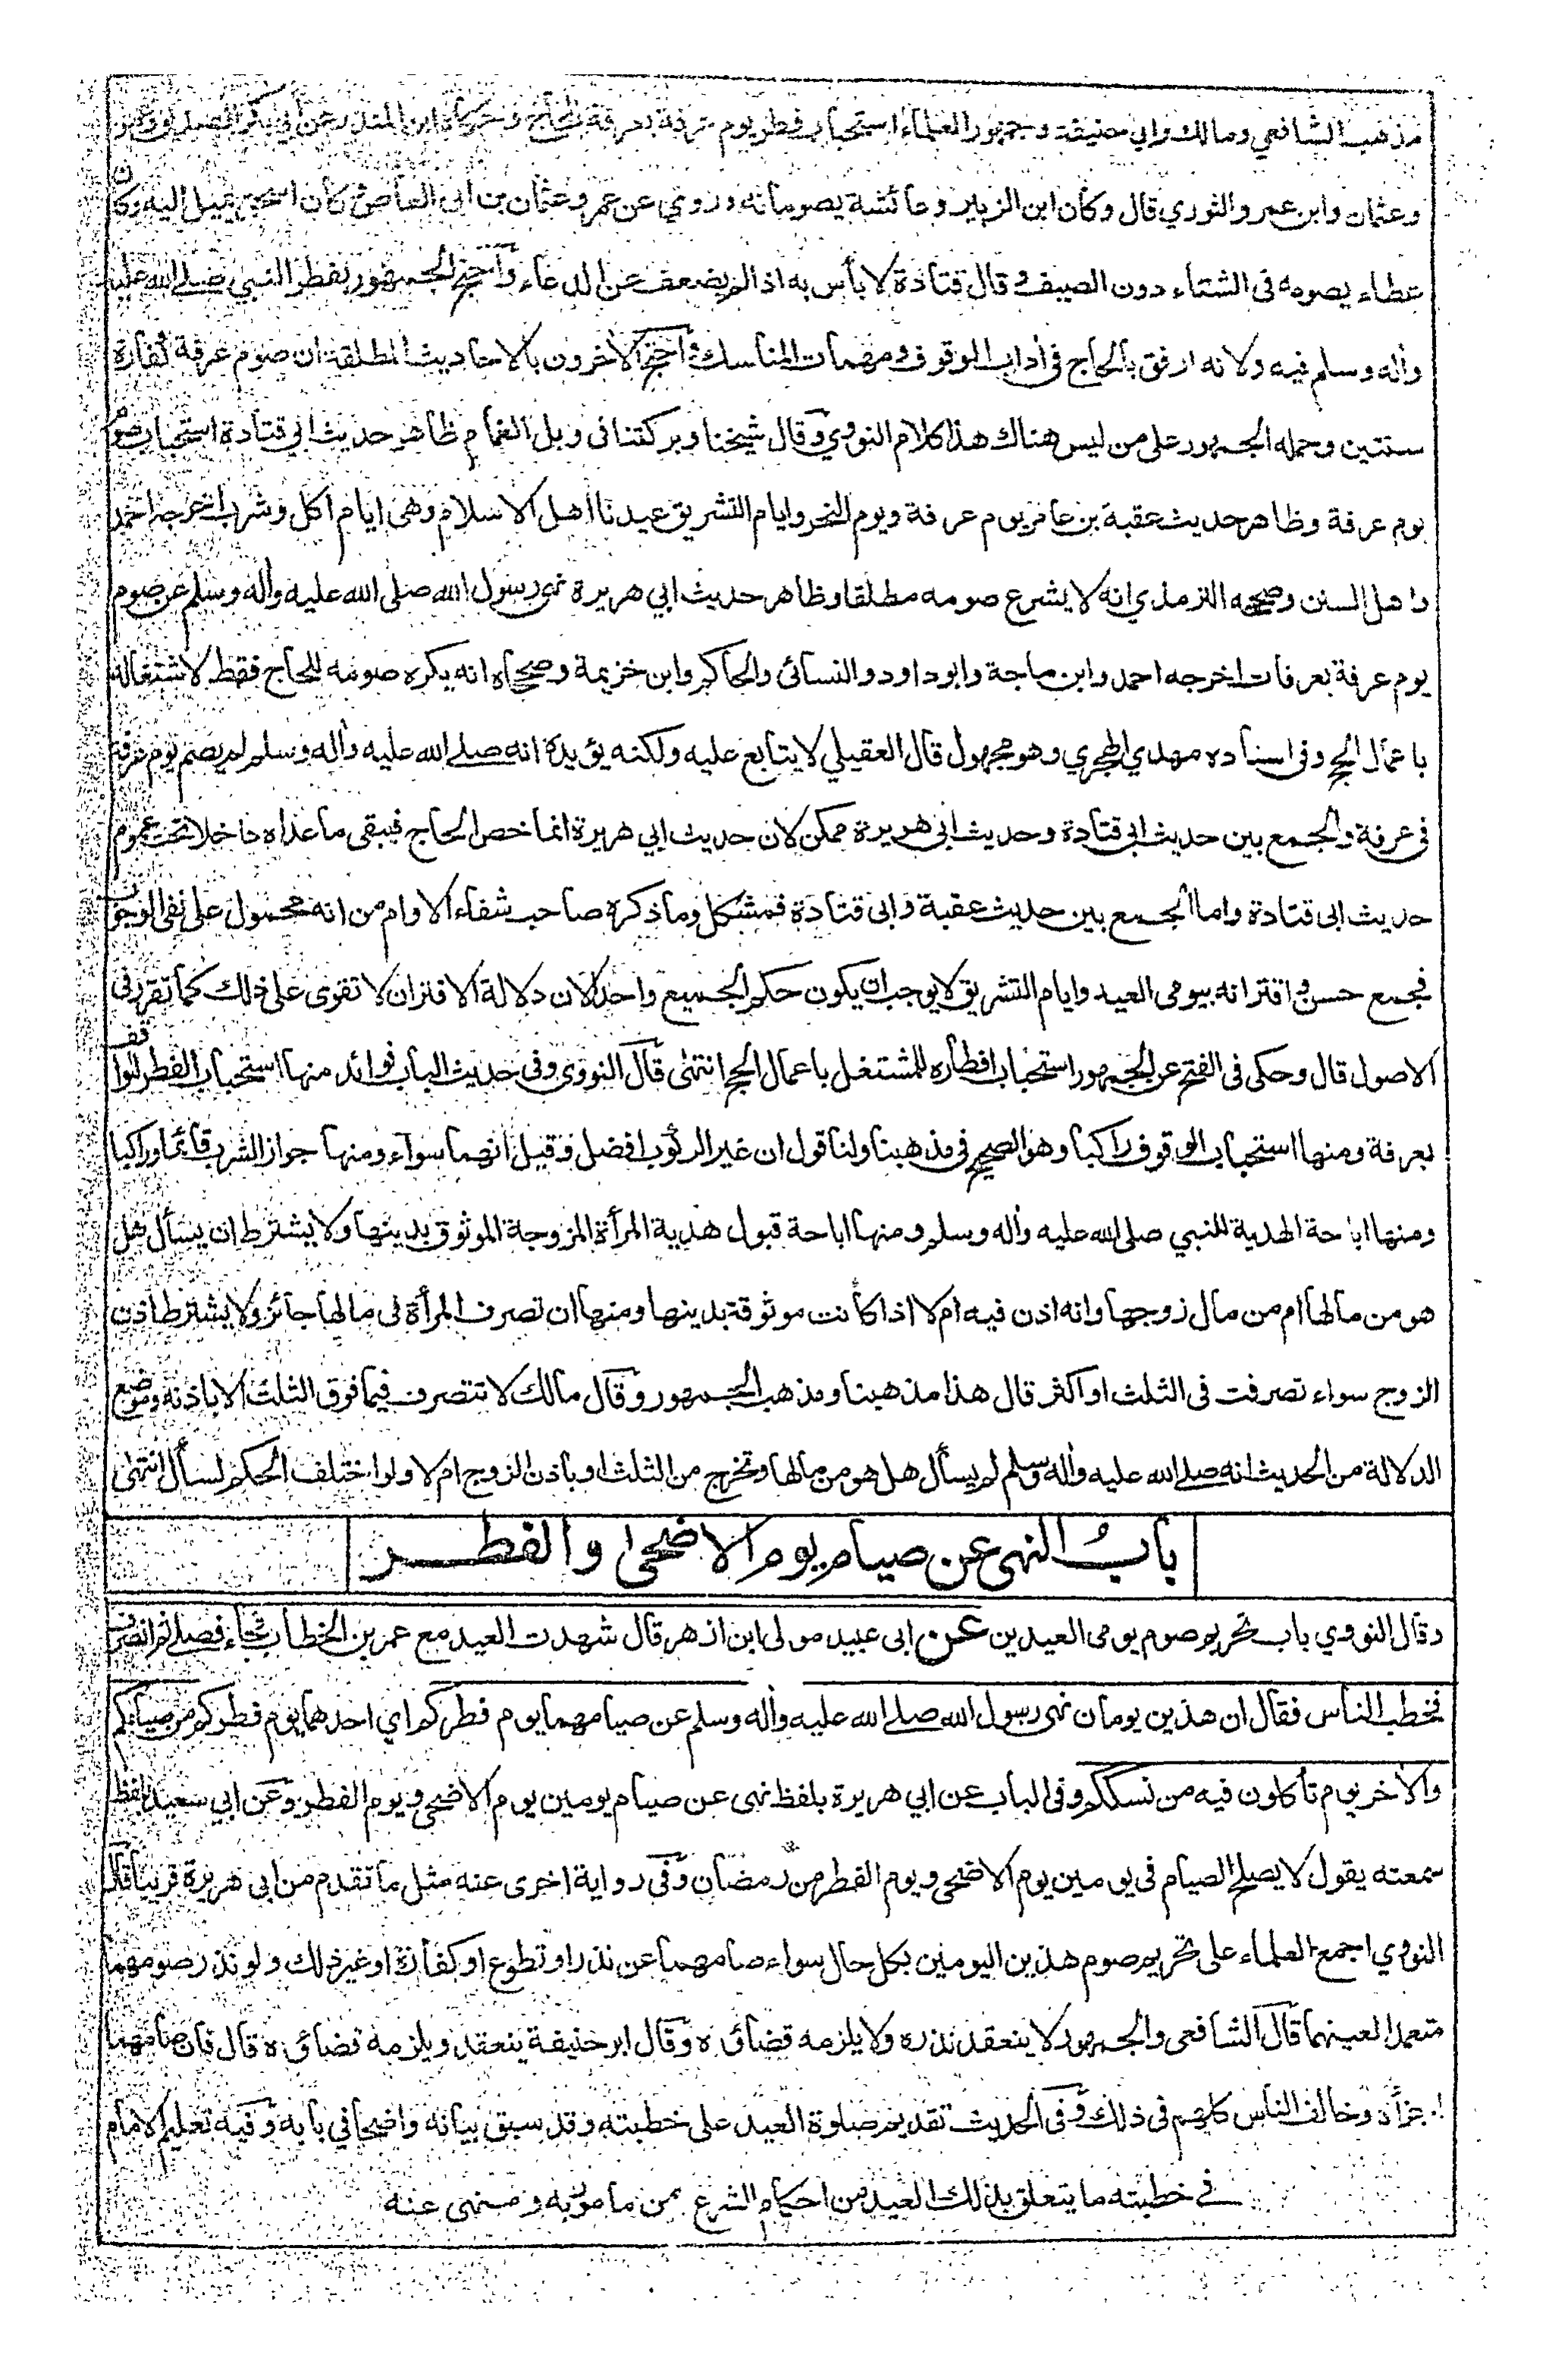 مذهب الشافعي ومالك وابي حنيفة وجمهور العلماء استحباب فطر يوم عرفة بعرفة للحاج وحكاه ابن المنذر عن ابي بكر الصديق وعمر
وعثمان وابن عمر والثوري قال وكان ابن الزبير وعائشة يصومانه وروي عن عمر وعثمان بن ابي العاص وكان اسحق يميل اليه وكان
عطاء يصومه فى الشتاء دون الصيف وقال قتادة لا بأس به اذا لم يضعف عن الدعاء واحتج الجمهور بفطر النبي صلى الله عليه
وأله وسلم فيه ولانه ارفق بالحاج فى أداب الوقوف ومهمات المناسك واحتج الأخرون بالاحاديث المطلقة ان صوم عرفة كفارة
سنتين وحمله الجمهور على من ليس هناك هذا كلام النووي وقال شيخنا وبركتنا فى وبل الغمام ظاهر حديث ابي قتادة استحباب صوم
يوم عرفة وظاهر حديث عقبة بن عامر يوم عرفة ويوم النحر وايام التشريق عيدنا اهل الاسلام وهى ايام اكل وشرب اخرجه احمد
واهل السنن وصححه الترمذي انه لا يشرع صومه مطلقا وظاهر حديث ابي هريرة نهى رسول الله صلى الله عليه وأله وسلم عن صوم
يوم عرفة بعرفات اخرجه احمد وابن ماجة وابو داود والنسائى والحاكم وابن خزيمة وصححاه انه يكره صومه للحاج فقط لاشتغاله
باعمال الحج وفى اسناده مهدي الهجري وهو مجهول قال العقيلي لا يتابع عليه ولكنه يؤيده انه صلى الله عليه وأله وسلم لم يصم يوم عرفة
فى عرفة والجمع بين حديث ابى قتادة وحديث ابى هريرة ممكن لان حديث ابي هريرة انما خص الحاج فيبقى ما عداه داخلا تحت عموم
حديث ابى قتادة واما الجمع بين حديث عقبة وابى قتادة فمشكل وما ذكره صاحب شفاء الاوام من انه محمول على نفى الوجوب
فجمع حسن واقترانه بيومى العيد وايام التشريق لا يوجب ان يكون حكم الجميع واحدا لان دلالة الاقتران لا تقوى على ذلك كما تقرر فى
الاصول قال وحكى فى الفتح عن الجمهور استحباب افطاره للمشتغل باعمال الحج انتهى قال النووى وفى حديث الباب فوائد منها استحباب الفطر للواقف
بعرفة ومنها استحباب الوقوف راكبا وهو الصحيح فى مذهبنا ولنا قول ان غير الركوب افضل وقيل انهما سواء ومنها جواز الشرب قائما وراكبا
ومنها اباحة الهدية للنبي صلى الله عليه وأله وسلم ومنها اباحة قبول هدية المرأة المزوجة الموثوق بدينها ولا يشترط ان يسأل هل
هو من مالها ام من مال زوجها وانه اذن فيه ام لا اذا كانت موثوقة بدينها ومنها ان تصرف المرأة فى مالها جائز ولا يشترط اذن
الزوج سواء تصرفت فى الثلث او اكثر قال هذا مذهبنا ومذهب الجمهور وقال مالك لا تتصرف فيما فوق الثلث الا باذنه وموضع
الدلالة من الحديث انه صلى الله عليه وأله وسلم لم يسأل هل هو من مالها وتخرج من الثلث او باذن الزوج ام لا ولو اختلف الحكم لسأل انتهى
باب النهى عن صيام يوم الاضحى والفطر
وقال النووي باب تحريم صوم يومى العيدين عن ابى عبيد مولى ابن ازهر قال شهدت العيد مع عمر بن الخطاب فجاء فصلى ثم انصرف
فخطب الناس فقال ان هذين يومان نهى رسول الله صلى الله عليه وأله وسلم عن صيامهما يوم فطركم اي احدهما يوم فطركم من صيامكم
والأخر يوم تأكلون فيه من نسككم وفى الباب عن ابي هريرة بلفظ نهى عن صيام يومين يوم الاضحى ويوم الفطر وعن ابي سعيد بلفظ
سمعته يقول لا يصلح الصيام فى يومين يوم الاضحى ويوم الفطر من رمضان وفى رواية اخرى عنه مثل ما تقدم من ابى هريرة قريبا قال
النووي اجمع العلماء على تحريم صوم هذين اليومين بكل حال سواء صامهما عن نذر او تطوع او كفارة او غير ذلك ولو نذر صومهما
متعمدا لعينهما قال الشافعى والجمهور لا ينعقد نذره ولا يلزمه قضاؤه وقال ابو حنيفة ينعقد ويلزمه قضاؤه قال فان صامهما
اجزأه وخالف الناس كلهم فى ذلك وفى الحديث تقديم صلوة العيد على خطبته وقد سبق بيانه واضحا في بابه وفيه تعليم الامام
في خطبته ما يتعلق بذلك العيد من احكام الشرع من مامور به ومنهى عنه